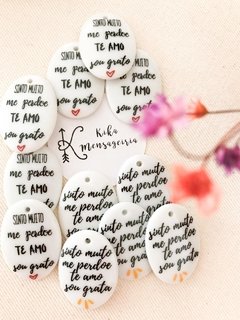 SINTO MUITO
me perdoe
TE AMO
sou grato
SINTO MUITO
me perdoe
TE AMO
sou grato
SINTO MUITO
me perdoe
TE AMO
sou grato
SINTO MUITO
me perdoe
TE AMO
sou grato
SINTO MUITO
me perdoe
TE AMO
sou grato
K
Kaká
Mensageiria
SINTO MUITO
me perdoe
TE AMO
sou grato
sinto muito
me perdoe
te amo
sou grata
sinto muito
me perdoe
te amo
sou grata
sinto muito
me perdoe
te amo
sou grata
sinto muito
me perdoe
te amo
sou grata